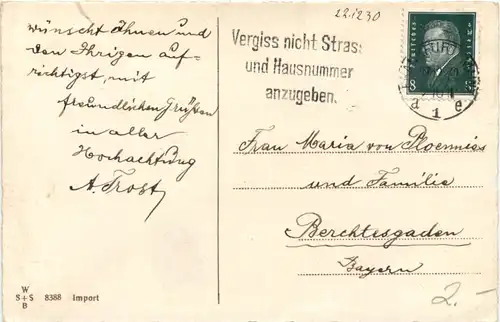 wünscht Ihnen und
den Ihrigen auf-
richtigst, mit
freundlichen Grüßen
in aller
Hochachtung
A. Trost
W
S+S 8388 Import
B
22.12.30
Vergiss nicht Strass
und Hausnummer
anzugeben.
8 8
d 1 e
Frau Maria von Ploennies
und Familie
Berchtesgaden
Bayern
2.-